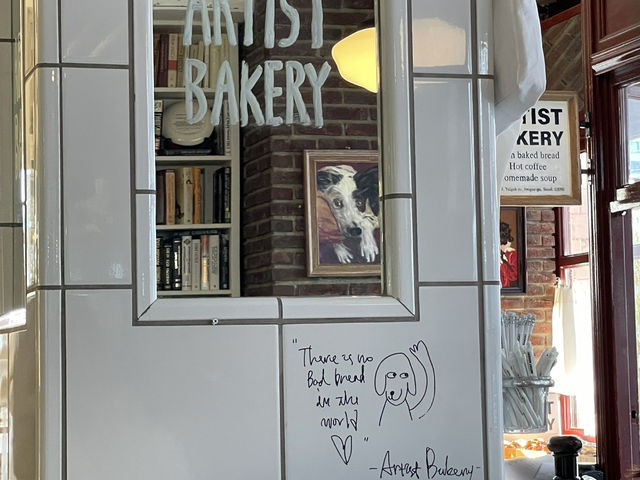 ARTIST
BAKERY
TIST
KERY
baked bread
Hot coffee
omemade soup
"There is no
Bad bread
in the
world
"
-Artist Bakery-